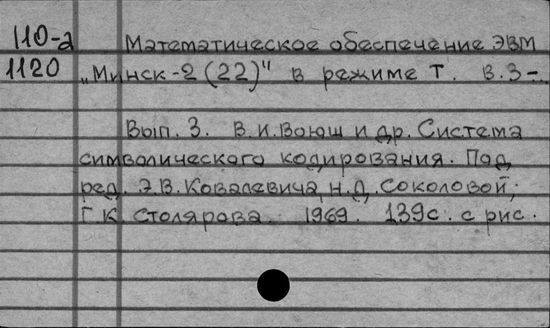 110-а Математическое обеспечение ЭВМ
1120 „Минск-2(22)" в режиме Т. В.3-.
Вып. 3. В.И.Воюш и др. Система
символического кодирования. Под
ред. Э.В.Ковалевича, Н.Д.Соколовой,
Г.К.Столярова. 1969. 139с. с рис.